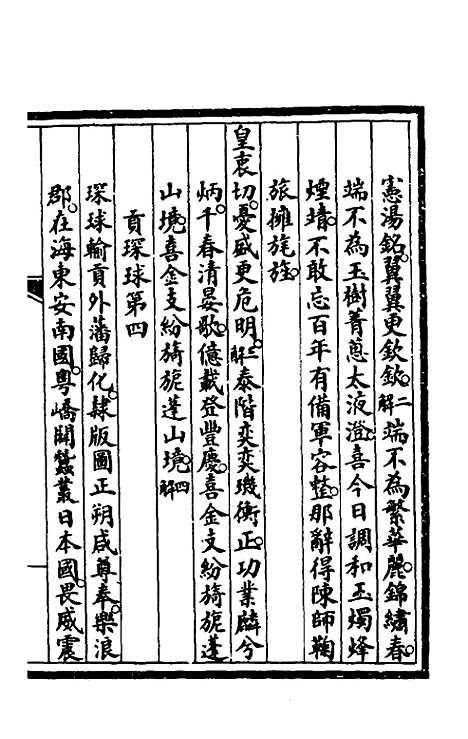 憲湯銘翼翼更欽欽二解端不為繁華麗錦繡春
端不為玉樹菁蔥太液澄喜今日調和玉燭烽
煙靖不敢忘百年有備軍容整那辭得陳師鞠
旅擁旄旌
皇衷切憂盛更危明三解泰階奕奕璣衡正功業麟兮
炳千春清晏歌億載登豐慶喜金支紛旖旎蓬
山境喜金支紛旖旎蓬山境四解
貢琛球第四
琛球輸貢外藩歸化隸版圖正朔咸尊奉樂浪
郡在海東安南國粵嶠關蠶叢日本國畏威震